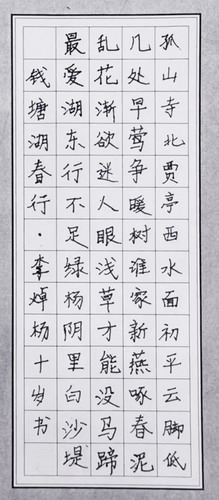 孤山寺北贾亭西水面初平云脚低
几处早莺争暖树谁家新燕啄春泥
乱花渐欲迷人眼浅草才能没马蹄
最爱湖东行不足绿杨阴里白沙堤
钱塘湖春行·李焯杨十岁书